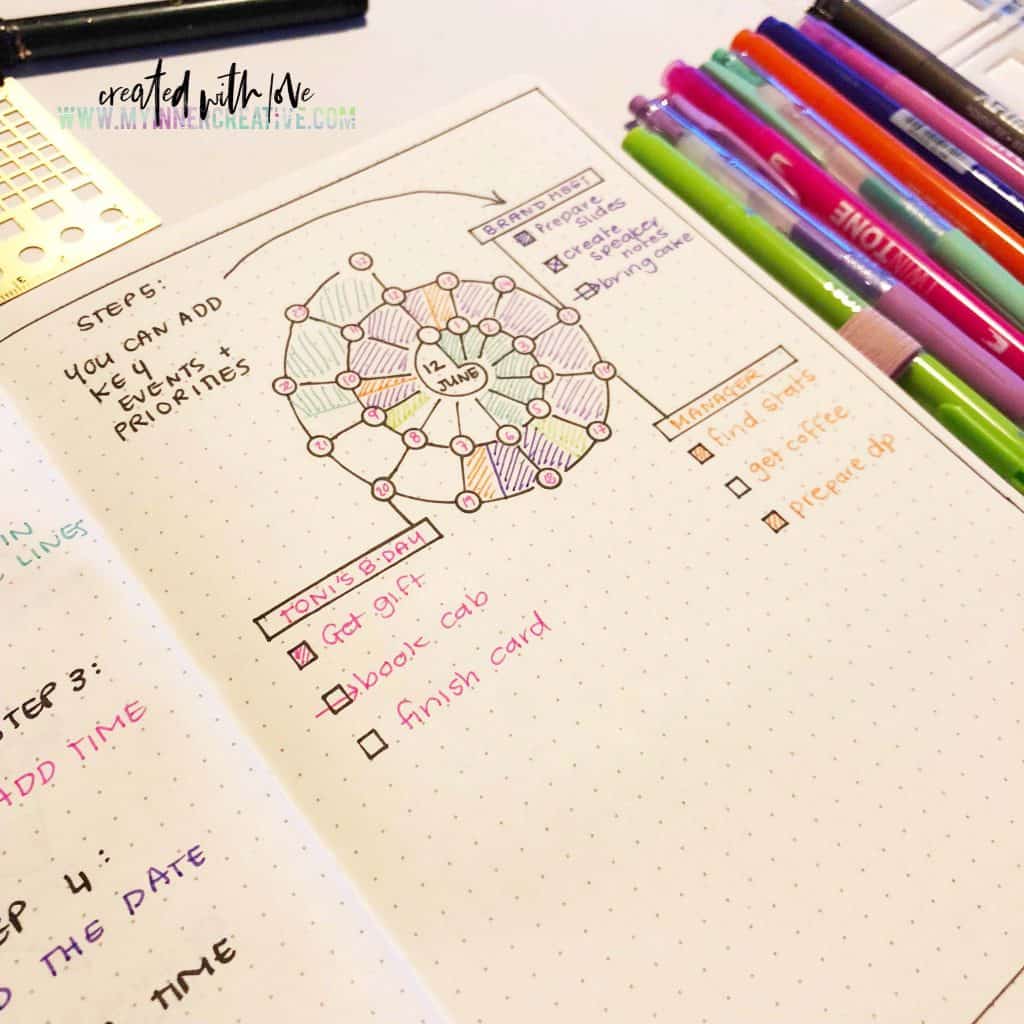 created with love
WWW.MYINNERCREATIVE.COM
STEP 5:
YOU CAN ADD
KEY
EVENTS +
PRIORITIES
12
JUNE
BRAND MEET
Prepare
slides
create
speaker
notes
bring cake
MANAGER
find stats
get coffee
prepare dp
TONI'S B-DAY
Get gift
book cab
finish card
IN
LINES
STEP 3:
ADD TIME
4:
THE DATE
TIME
TWINTONE